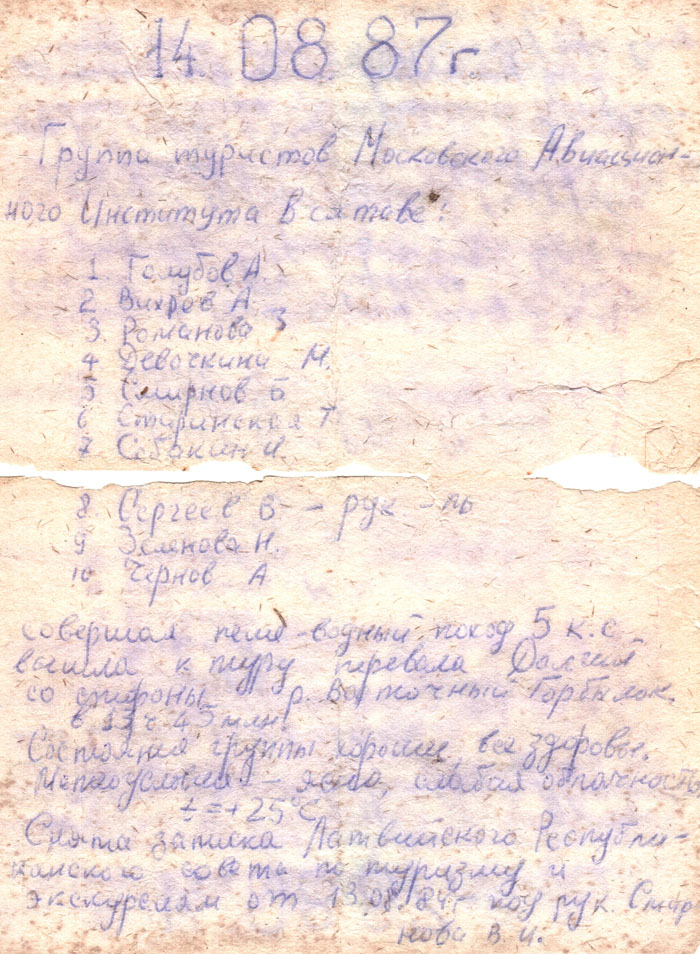 14. 08 87г
Группа туристов Московского Авиацион-
ного Института в ставе:
1 Голубов А.
2 Вихров А.
3 Романова З
4 Девочкина М.
5 Смирнов Б
6 Старинская Т
7 Собакин И.
8 Сергеев В - рук-ль
9 Зеленова Н.
10 Чернов А
совершая пеше-водный поход 5 к.с
вышла к туру перевала
со стороны р. Восточный Горбылок.
в 13 ч 45 мин.
Состояние группы хорошее, все здоровы.
Метеоусловия - ясно, слабая облачность
t = +25°C
Снята записка Латвийского Республи-
канского совета по туризму и
экскурсиям от 13.08.84г под рук. Смир
нова В. И.